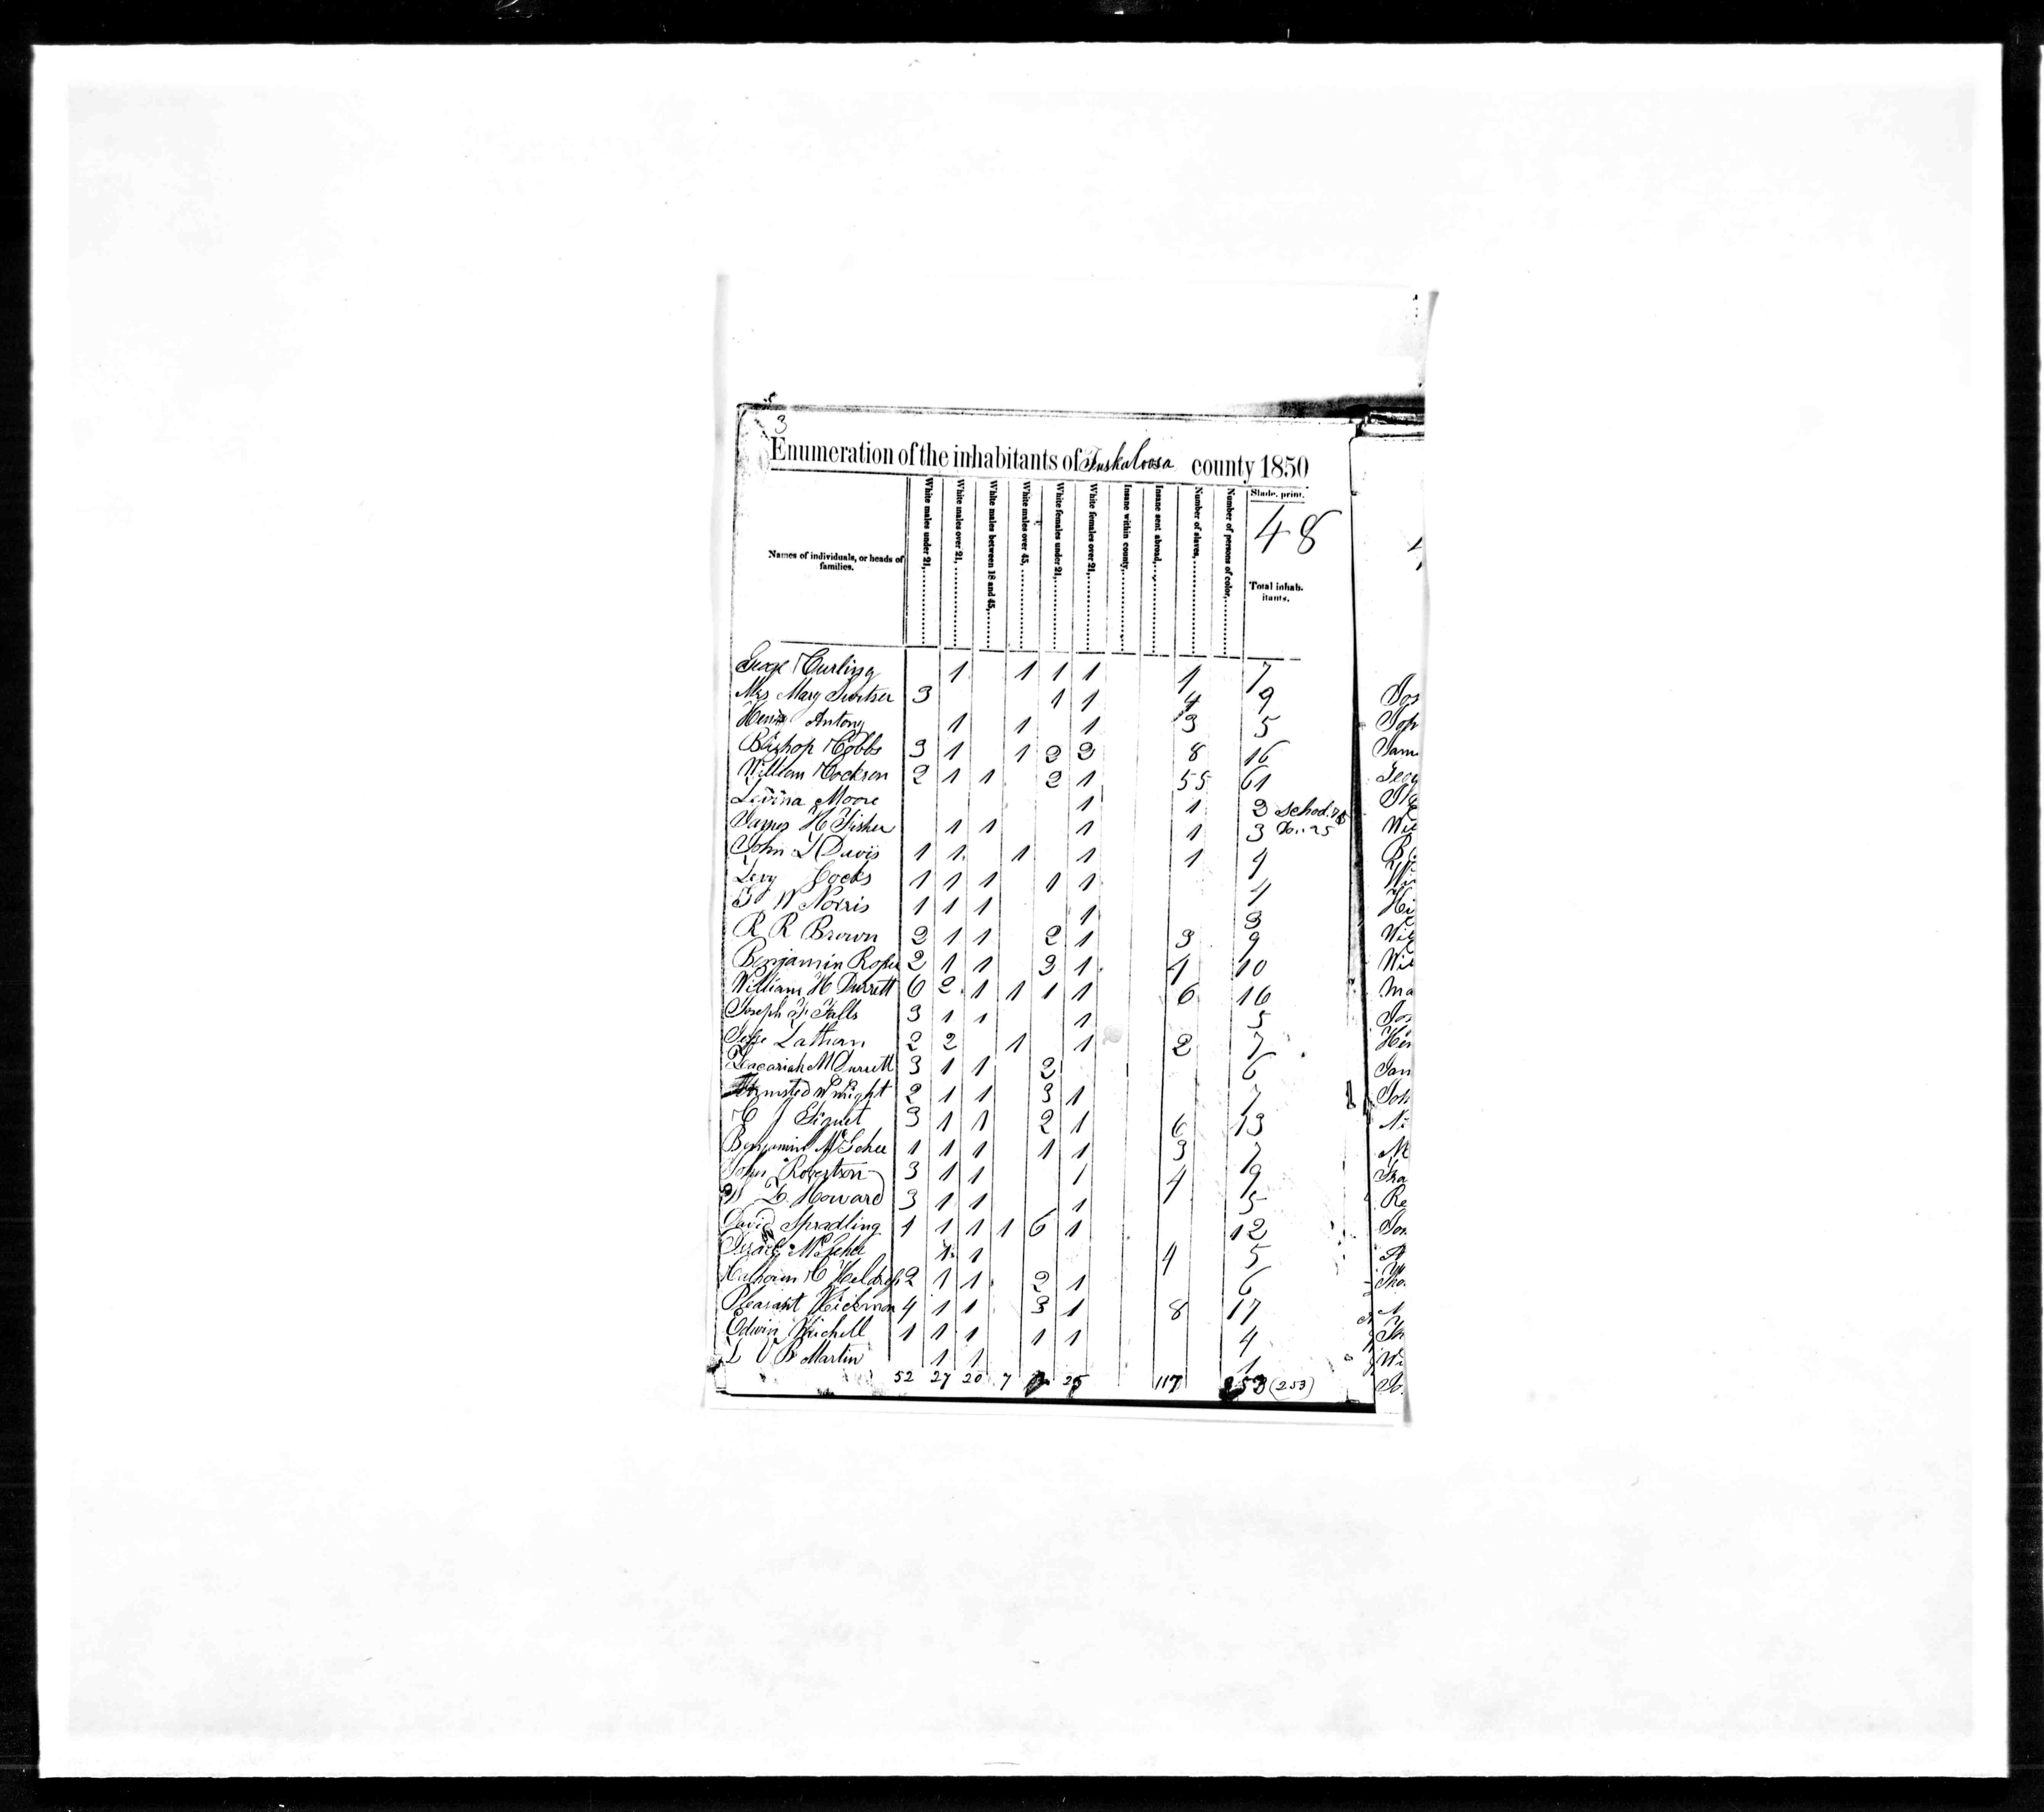 3
Enumeration of the inhabitants of Tuskaloosa county 1850
Names of individuals, or heads of families.
White males under 21,
White males over 21,
White males between 18 and 45,
White males over 45,
White females under 21,
White females over 21,
Insane within county,
Insane sent abroad,
Number of slaves,
Number of persons of color,
Slade, print.
48
Total inhabitants.
George Curling 1 1 1 1 1 7
Mrs Mary 3 1 1 4 9
Antony 1 1 1 3 5
Bishop Cobbs 3 1 1 2 2 8 16
William Cockren 2 1 1 2 1 55 61
Levina Moore 1 1 2 School
James H Fisher 1 1 1 1 3 Do. 25
John L Davis 1 1 1 1 1 4
Levy Cocks 1 1 1 1 1 4
W Norris 1 1 1 1 3
R R Brown 2 1 1 2 1 3 9
Benjamin Roper 2 1 1 3 1 4 10
William H Durrett 6 2 1 1 1 1 6 16
Joseph F Falls 3 1 1 1 5
Jesse Latham 2 2 1 1 2 7
Zacariah M Durrett 3 1 1 2 6
Wright 2 1 1 3 1 7
C J 3 1 1 2 1 6 13
Benjamin McGehee 1 1 1 1 1 3 7
John Robertson 3 1 1 1 4 9
Howard 3 1 1 1 5
David Spradling 1 1 1 1 6 1 12
Israel McGehee 1 1 4 5
Calhoun C 2 1 1 2 1 6
Pleasant Hickman 4 1 1 3 1 8 17
Edwin Michell 1 1 1 1 1 4
L V B Martin 1 1 1
52 27 20 7 25 117 253 (253)